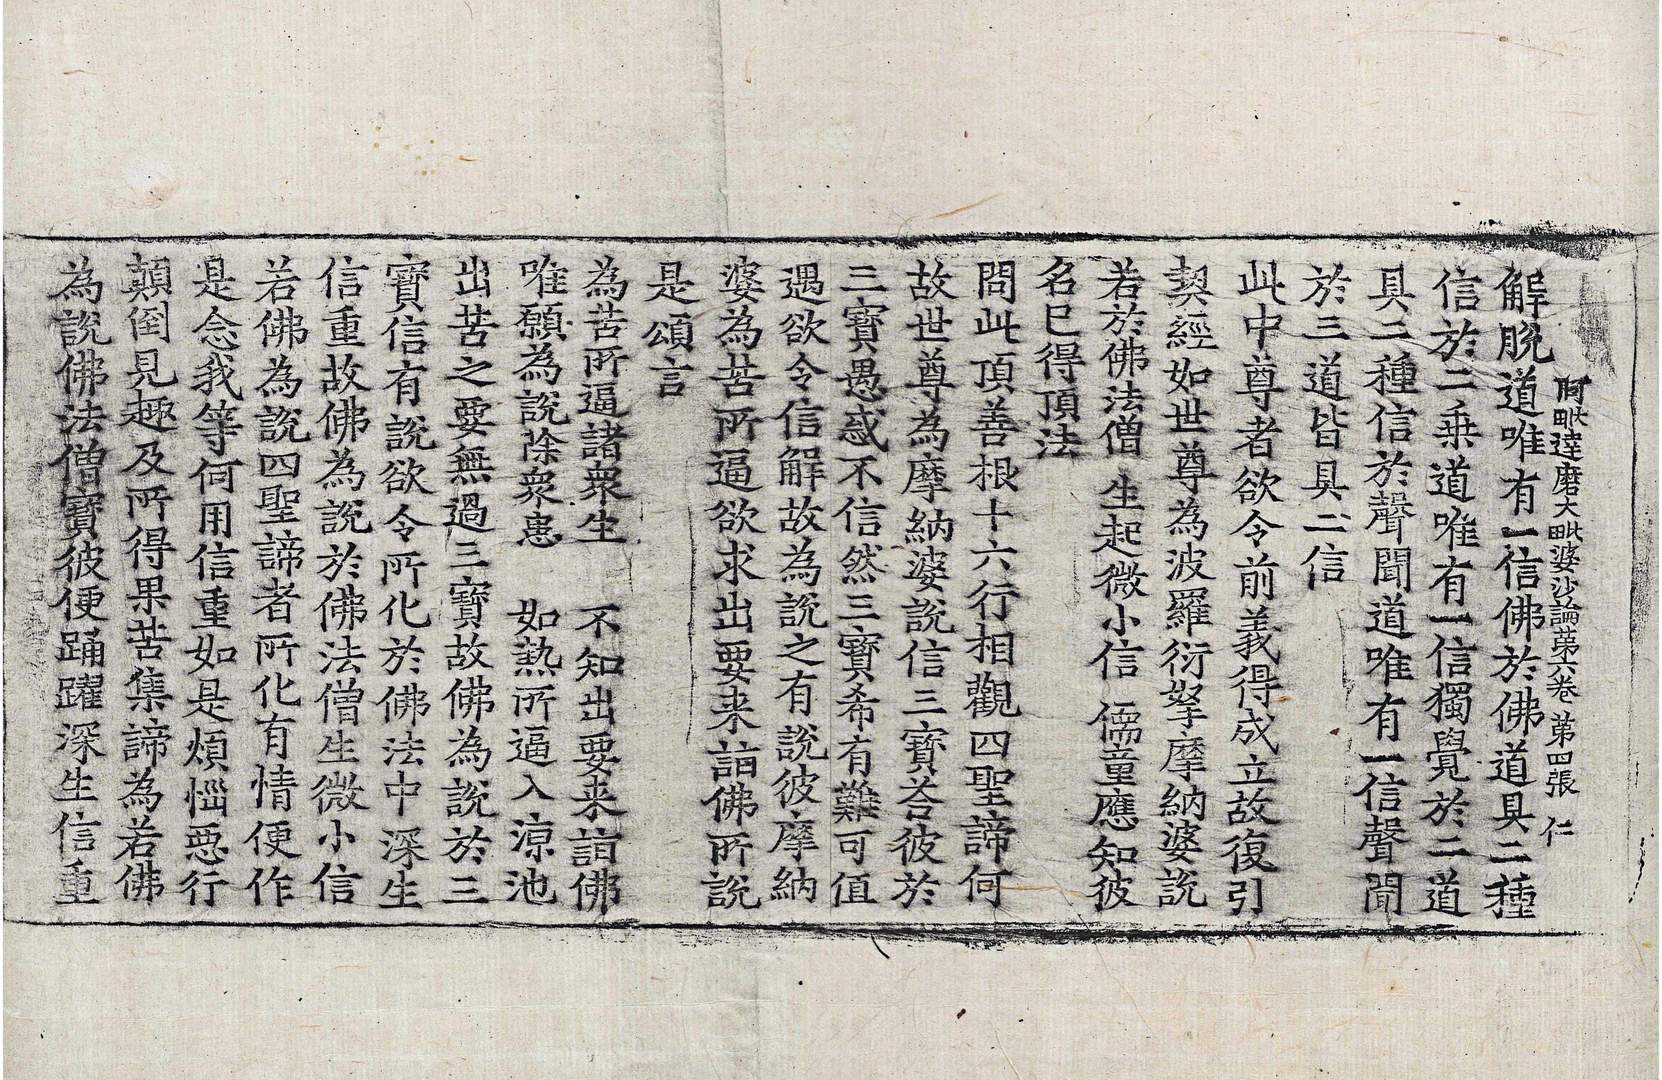 阿毗達磨大毗婆沙論第六卷 第四張 仁
解脫道唯有一信佛於佛道具二種
信於二乘道唯有一信獨覺於二道
具二種信於聲聞道唯有一信聲聞
於三道皆具二信
此中尊者欲令前義得成立故復引
契經如世尊為波羅衍拏摩納婆說
若於佛法僧 生起微小信 儒童應知彼
名已得頂法
問此頂善根十六行相觀四聖諦何
故世尊為摩納婆說信三寶荅彼於
三寶愚惑不信然三寶希有難可值
遇欲令信解故為說之有說彼摩納
婆為苦所逼欲求出要来詣佛所說
是頌言
為苦所逼諸衆生 不知出要来詣佛
唯願為說除衆患 如熱所逼入涼池
出苦之要無過三寶故佛為說於三
寶信有說欲令所化於佛法中深生
信重故佛為說於佛法僧生微小信
若佛為說四聖諦者所化有情便作
是念我等何用信重如是煩惱惡行
顛倒見趣及所得果苦集諦為若佛
為說佛法僧寶彼便踊躍深生信重